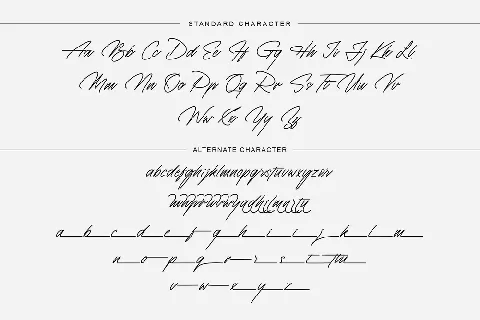 STANDARD CHARACTER
Aa Bb Cc Dd Ee Ff Gg Hh Ii Jj Kk Ll
Mm Nn Oo Pp Qq Rr Ss Tt Uu Vv
Ww Xx Yy Zz
ALTERNATE CHARACTER
abcdefghijklmnopqrstuvwxyzer
a b c d e f g h i i j k l m
n o p q r r s t tt
v w x y z